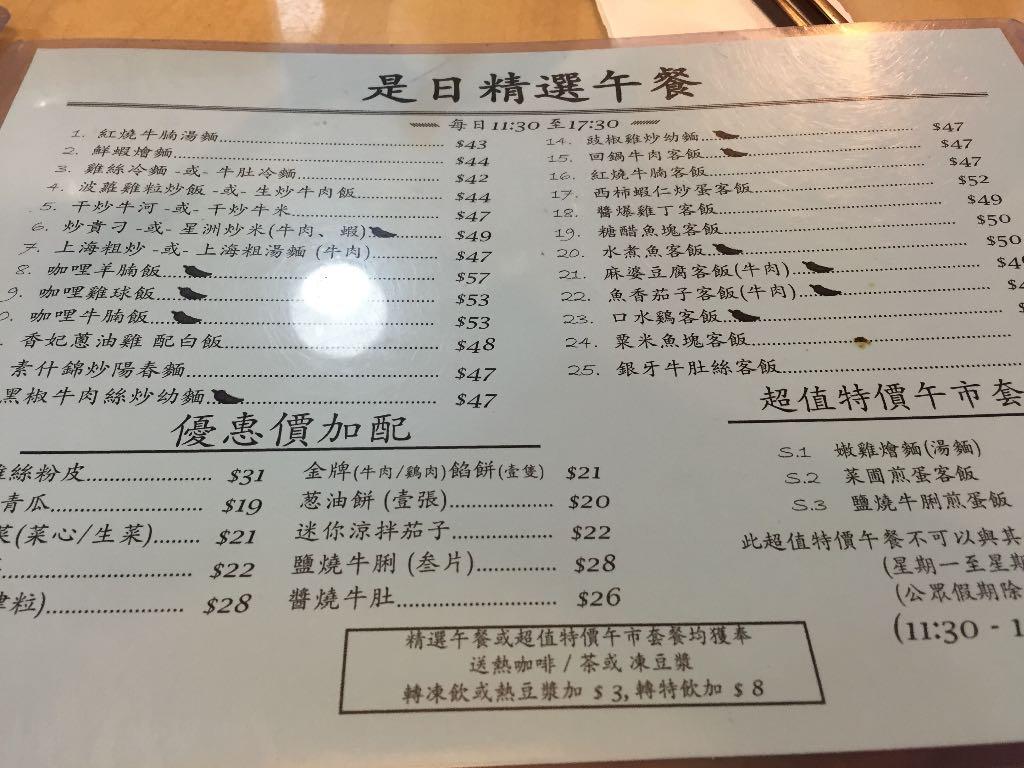 是日精選午餐
每日11:30 至17:30
1. 紅燒牛腩湯麵 $43
2. 鮮蝦燴麵 $44
3. 雞絲冷麵 -或- 牛肚冷麵 $42
4. 波蘿雞粒炒飯 -或- 生炒牛肉飯 $44
5. 干炒牛河 -或- 干炒牛米 $47
6. 炒貴刁 -或- 星洲炒米(牛肉、蝦) $49
7. 上海粗炒 -或- 上海粗湯麵 (牛肉) $47
8. 咖哩羊腩飯 $57
9. 咖哩雞球飯 $53
0. 咖哩牛腩飯 $53
香妃蔥油雞 配白飯 $48
素什錦炒陽春麵 $47
黑椒牛肉絲炒幼麵 $47
14. 豉椒雞炒幼麵 $47
15. 回鍋牛肉客飯 $47
16. 紅燒牛腩客飯 $47
17. 西柿蝦仁炒蛋客飯 $52
18. 醬爆雞丁客飯 $49
19. 糖醋魚塊客飯 $50
20. 水煮魚客飯 $50
21. 麻婆豆腐客飯(牛肉)
22. 魚香茄子客飯(牛肉)
23. 口水鷄客飯
24. 粟米魚塊客飯
25. 銀牙牛肚絲客飯
優惠價加配
絲粉皮 $31
青瓜 $19
菜(菜心/生菜) $21
$22
粒) $28
金牌(牛肉/鷄肉)餡餅(壹隻) $21
蔥油餅 (壹張) $20
迷你涼拌茄子 $22
鹽燒牛脷 (叁片) $28
醬燒牛肚 $26
超值特價午市套
S.1 嫩雞燴麵(湯麵)
S.2 菜圃煎蛋客飯
S.3 鹽燒牛脷煎蛋飯
此超值特價午餐不可以與其
(星期一至星期
(公眾假期除
(11:30 - 1
精選午餐或超值特價午市套餐均獲奉
送熱咖啡 / 茶或 凍豆漿
轉凍飲或熱豆漿加 $ 3, 轉特飲加 $ 8